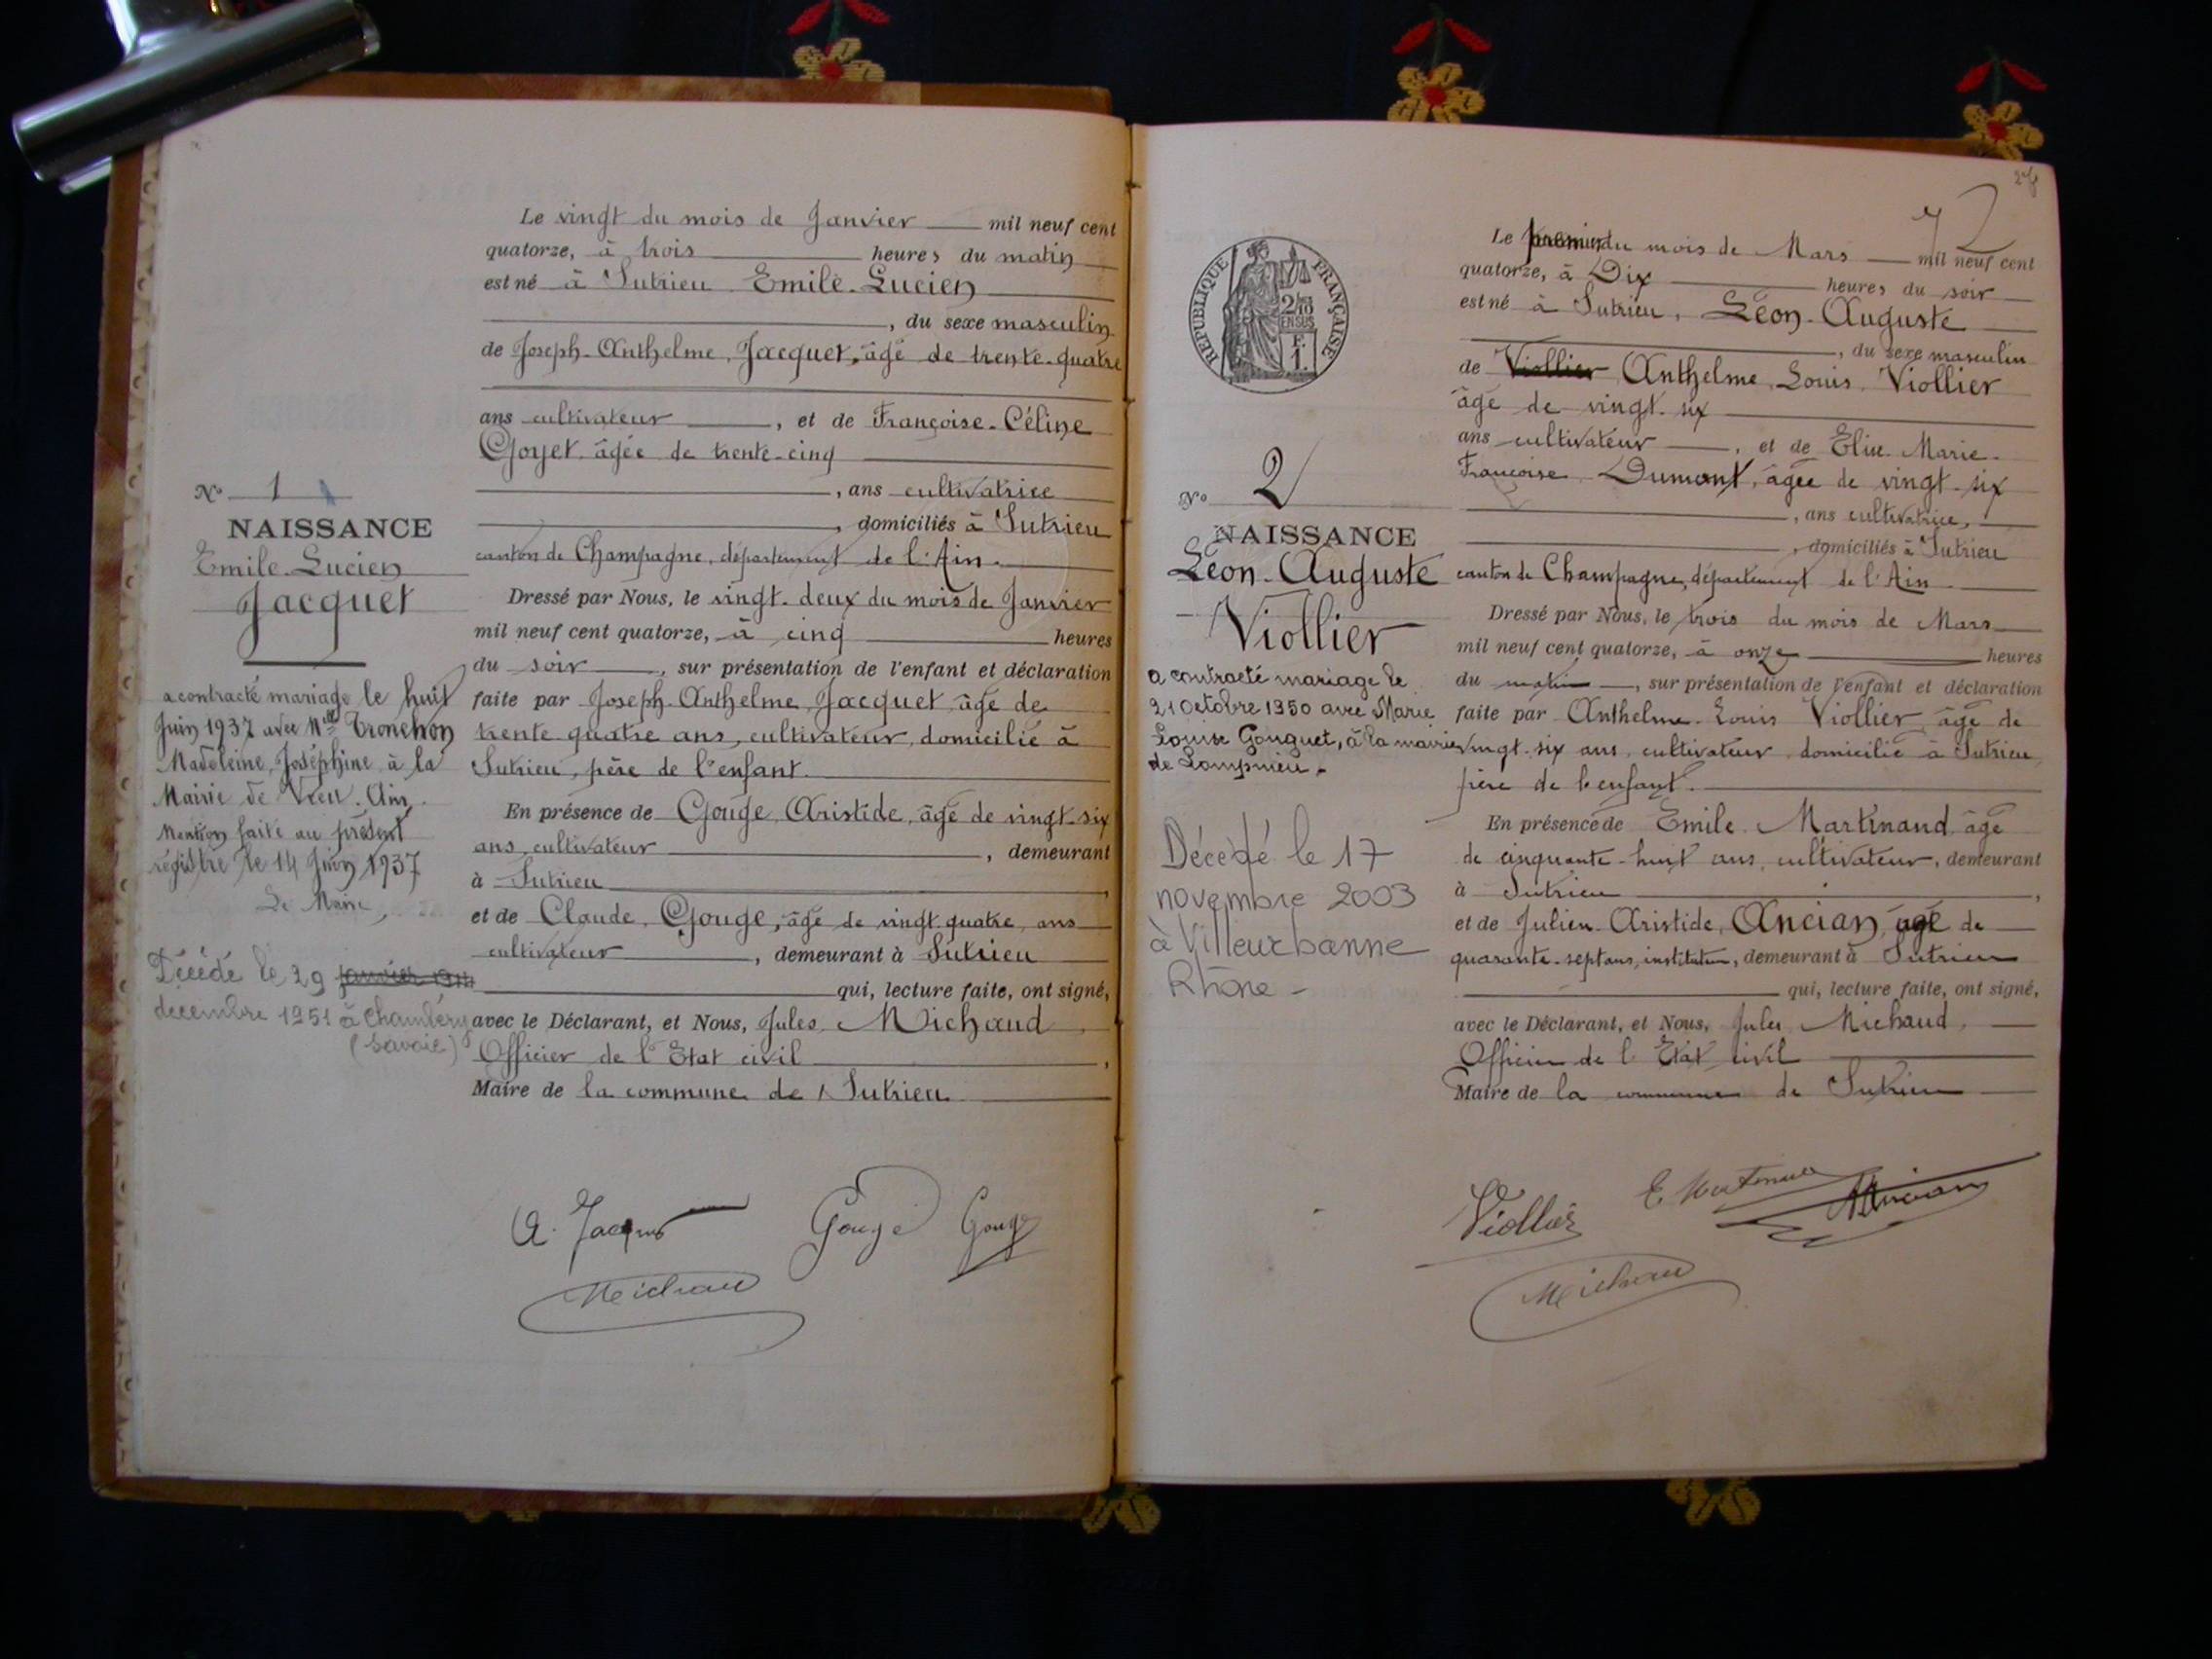 Le vingt du mois de Janvier mil neuf cent
quatorze, à trois heures du matin
est né à Sutrieu Emile-Lucien
, du sexe masculin
de Joseph-Anthelme, Jacquet, âgé de trente-quatre
ans cultivateur, et de Françoise-Céline
Goyet âgée de trente-cinq
, ans cultivatrice
, domiciliés à Sutrieu
canton de Champagne, département de l'Ain.
Dressé par Nous, le vingt-deux du mois de Janvier
mil neuf cent quatorze, à cinq heures
du soir, sur présentation de l'enfant et déclaration
faite par Joseph-Anthelme, Jacquet âgé de
trente quatre ans, cultivateur, domicilié à
Sutrieu, père de l'enfant.
En présence de Gouge, Aristide, âgé de vingt-six
ans, cultivateur, demeurant
à Sutrieu,
et de Claude, Gouge, âgé de vingt quatre ans
cultivateur, demeurant à Sutrieu
qui, lecture faite, ont signé,
avec le Déclarant, et Nous, Jules Michaud
Officier de l'Etat civil,
Maire de la commune de Sutrieu
A. Jacquet Gouge Gouge
Michaud
No 1
NAISSANCE
Emile-Lucien
Jacquet
a contracté mariage le huit
Juin 1937 avec Mlle Tronchon
Madeleine, Joséphine à la
Mairie de Vieu. Ain.
Mention faite au présent
régistre le 14 Juin 1937
Le Maire,
Décédé le 29 janvier
decembre 1951 à Chambéry
(Savoie)
2
Le premier du mois de Mars mil neuf cent
quatorze, à Dix heures du soir
est né à Sutrieu, Léon-Auguste
, du sexe masculin
de Viollier Anthelme, Louis, Viollier
âgé de vingt-six
ans cultivateur, et de Elise-Marie-
Françoise Dumont, âgée de vingt-six
, ans cultivatrice,
, domiciliés à Sutrieu
canton de Champagne, département de l'Ain
Dressé par Nous, le trois du mois de Mars
mil neuf cent quatorze, à onze heures
du matin, sur présentation de l'enfant et déclaration
faite par Anthelme-Louis Viollier, âgé de
vingt-six ans, cultivateur domicilié à Sutrieu,
père de l'enfant.
En présence de Emile Martinand âgé
de cinquante-huit ans, cultivateur, demeurant
à Sutrieu,
et de Julien-Aristide, Ancian, âgé de
quarante-sept ans, instituteur, demeurant à Sutrieu
qui, lecture faite, ont signé,
avec le Déclarant, et Nous, Jules Michaud,
Officier de l'Etat civil
Maire de la commune de Sutrieu
Viollier E. Martinand Ancian
Michaud
REPUBLIQUE FRANÇAISE
2/10
EN SUS
F.
1.
No 2
NAISSANCE
Léon-Auguste
Viollier
a contracté mariage le
21 Octobre 1950 avec Marie
Louise Gonguet, à la mairie
de Lompnieu.
Décédé le 17
novembre 2003
à Villeurbanne
Rhône -